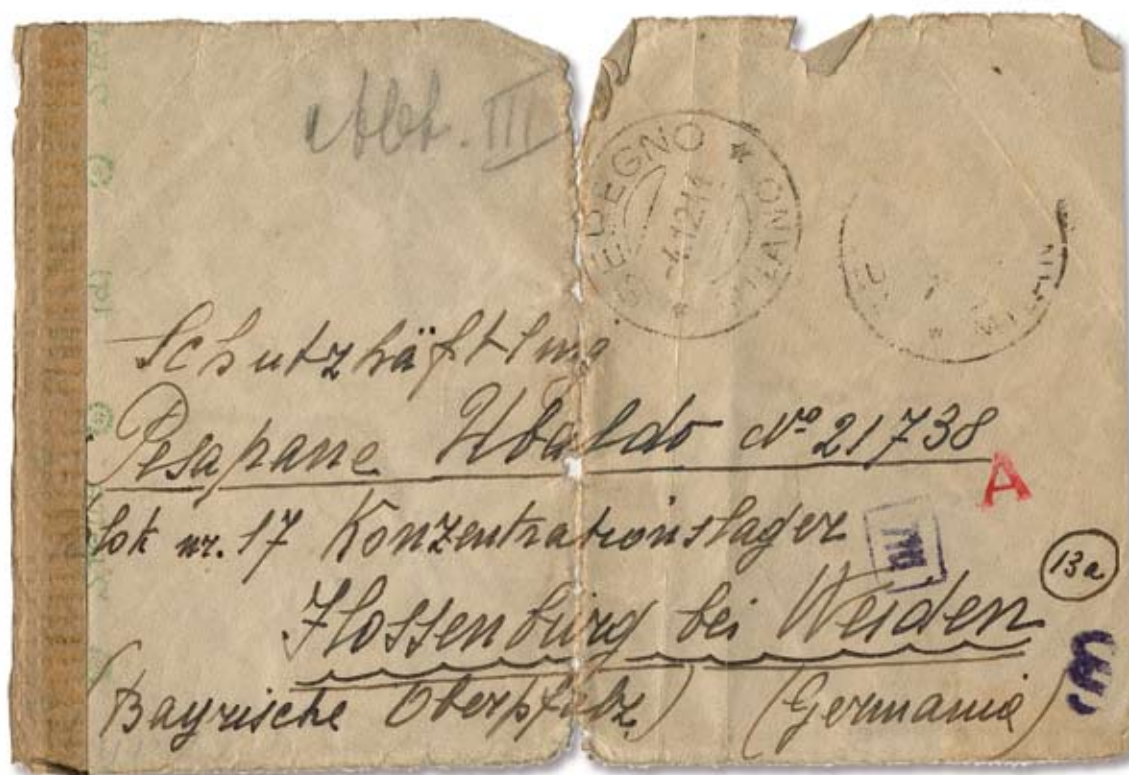 Abt. III
SEDEGNO * MILANO *
-4.12.44
Schutzhäftling
Pesapane Ubaldo Nº 21738
A
Blok nr. 17 Konzentrationslager
13a
Flossenbürg bei Weiden
(Bayrische Oberpfalz) (Germania)